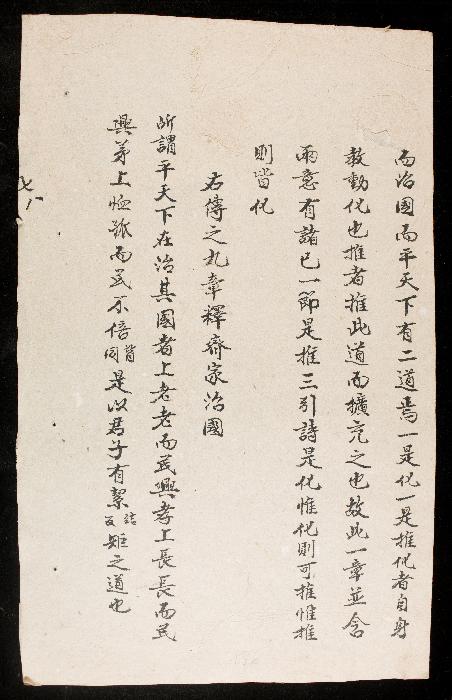 而治國而平天下有二道焉一是化一是推化者自身
教動化也推者推此道而擴充之也故此一章並含
兩意有諸己一節是推三引詩是化惟化則可推惟推
則皆化
右傳之九章釋齊家治國
所謂平天下在治其國者上老老而民興孝上長長而民
興弟上恤孤而民不倍背同是以君子有絜結反矩之道也